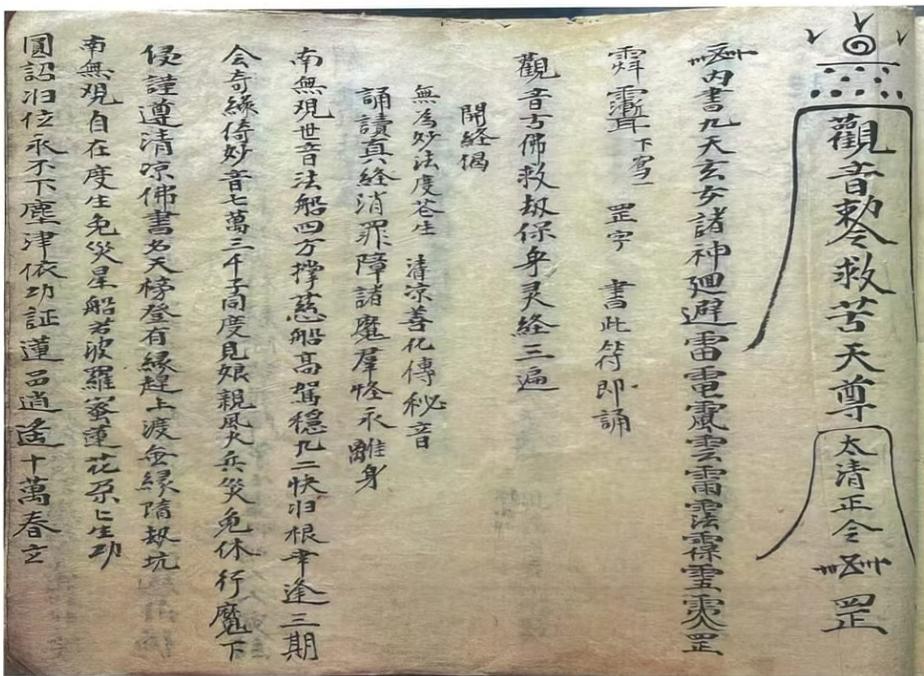 觀音勅令救苦天尊 太清正令 罡
内書九天玄女諸神廻避雷電風雲雷罡
下寫一罡字 書此符即誦
觀音古佛救劫保身灵経三遍
開経偈
無為妙法度苍生 清凉善化傳秘音
誦讀真経消罪障諸魔群怪永離身
南無观世音法船四方撑慈船高駕穏九二快归根幸逢三期
会奇緣倚妙音七萬三千子同度見娘親風火兵災免休行魔下
侵謹遵清凉佛書名天榜登有緣趕上渡無緣隋劫坑
南無观自在度生免災星船若波羅宻蓮花朶匕生功
圓詔归位永不下塵津依功証蓮品逍遙十萬春立